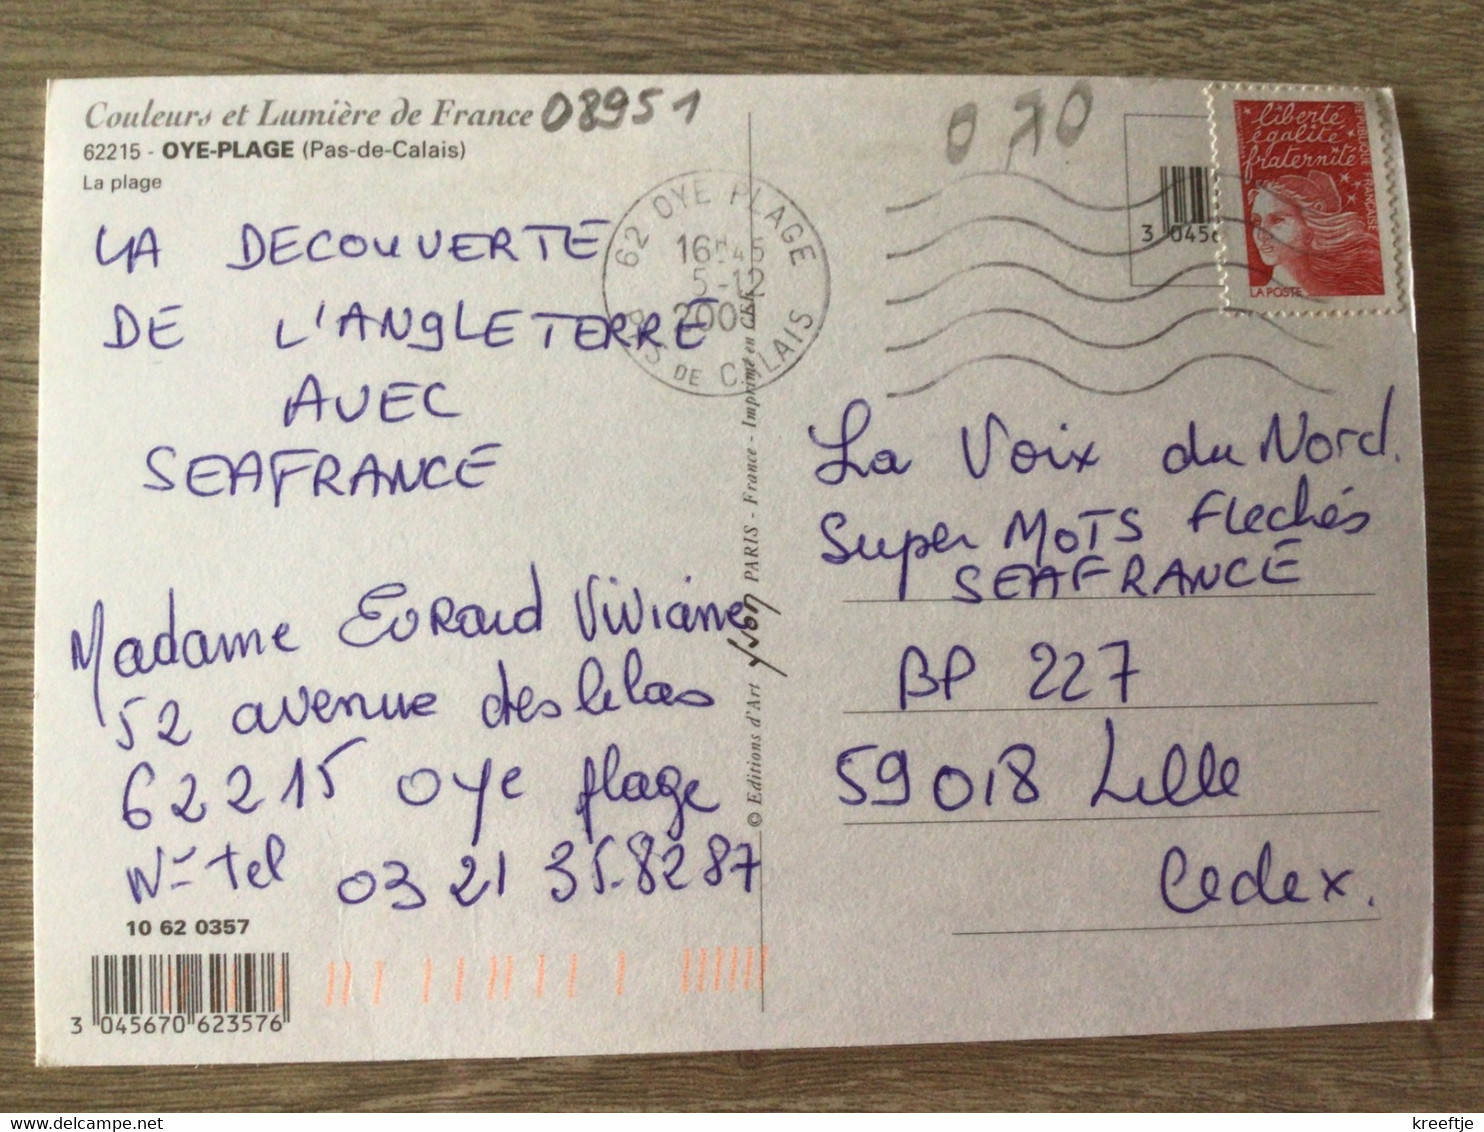 Couleurs et Lumière de France 08951
62215 - OYE-PLAGE (Pas-de-Calais)
La plage
LA DECOUVERTE
DE L'ANGLETERRE
AVEC
SEAFRANCE
Madame Evrard Viviane
52 avenue des lilas
62215 oye plage
N° tel 03 21 35.82 87
10 62 0357
3 045670 623576
62 OYE PLAGE
16H45
5-12
PAS DE CALAIS
© Editions d'Art yvon PARIS - France - Imprimé en CEE
0,70
3 0456
liberté
égalité
fraternité
RÉPUBLIQUE FRANÇAISE
LA POSTE
La Voix du Nord.
Super MOTS Flechés
SEAFRANCE
BP 227
59018 Lille
Cedex.
delcampe.net
kreeftje